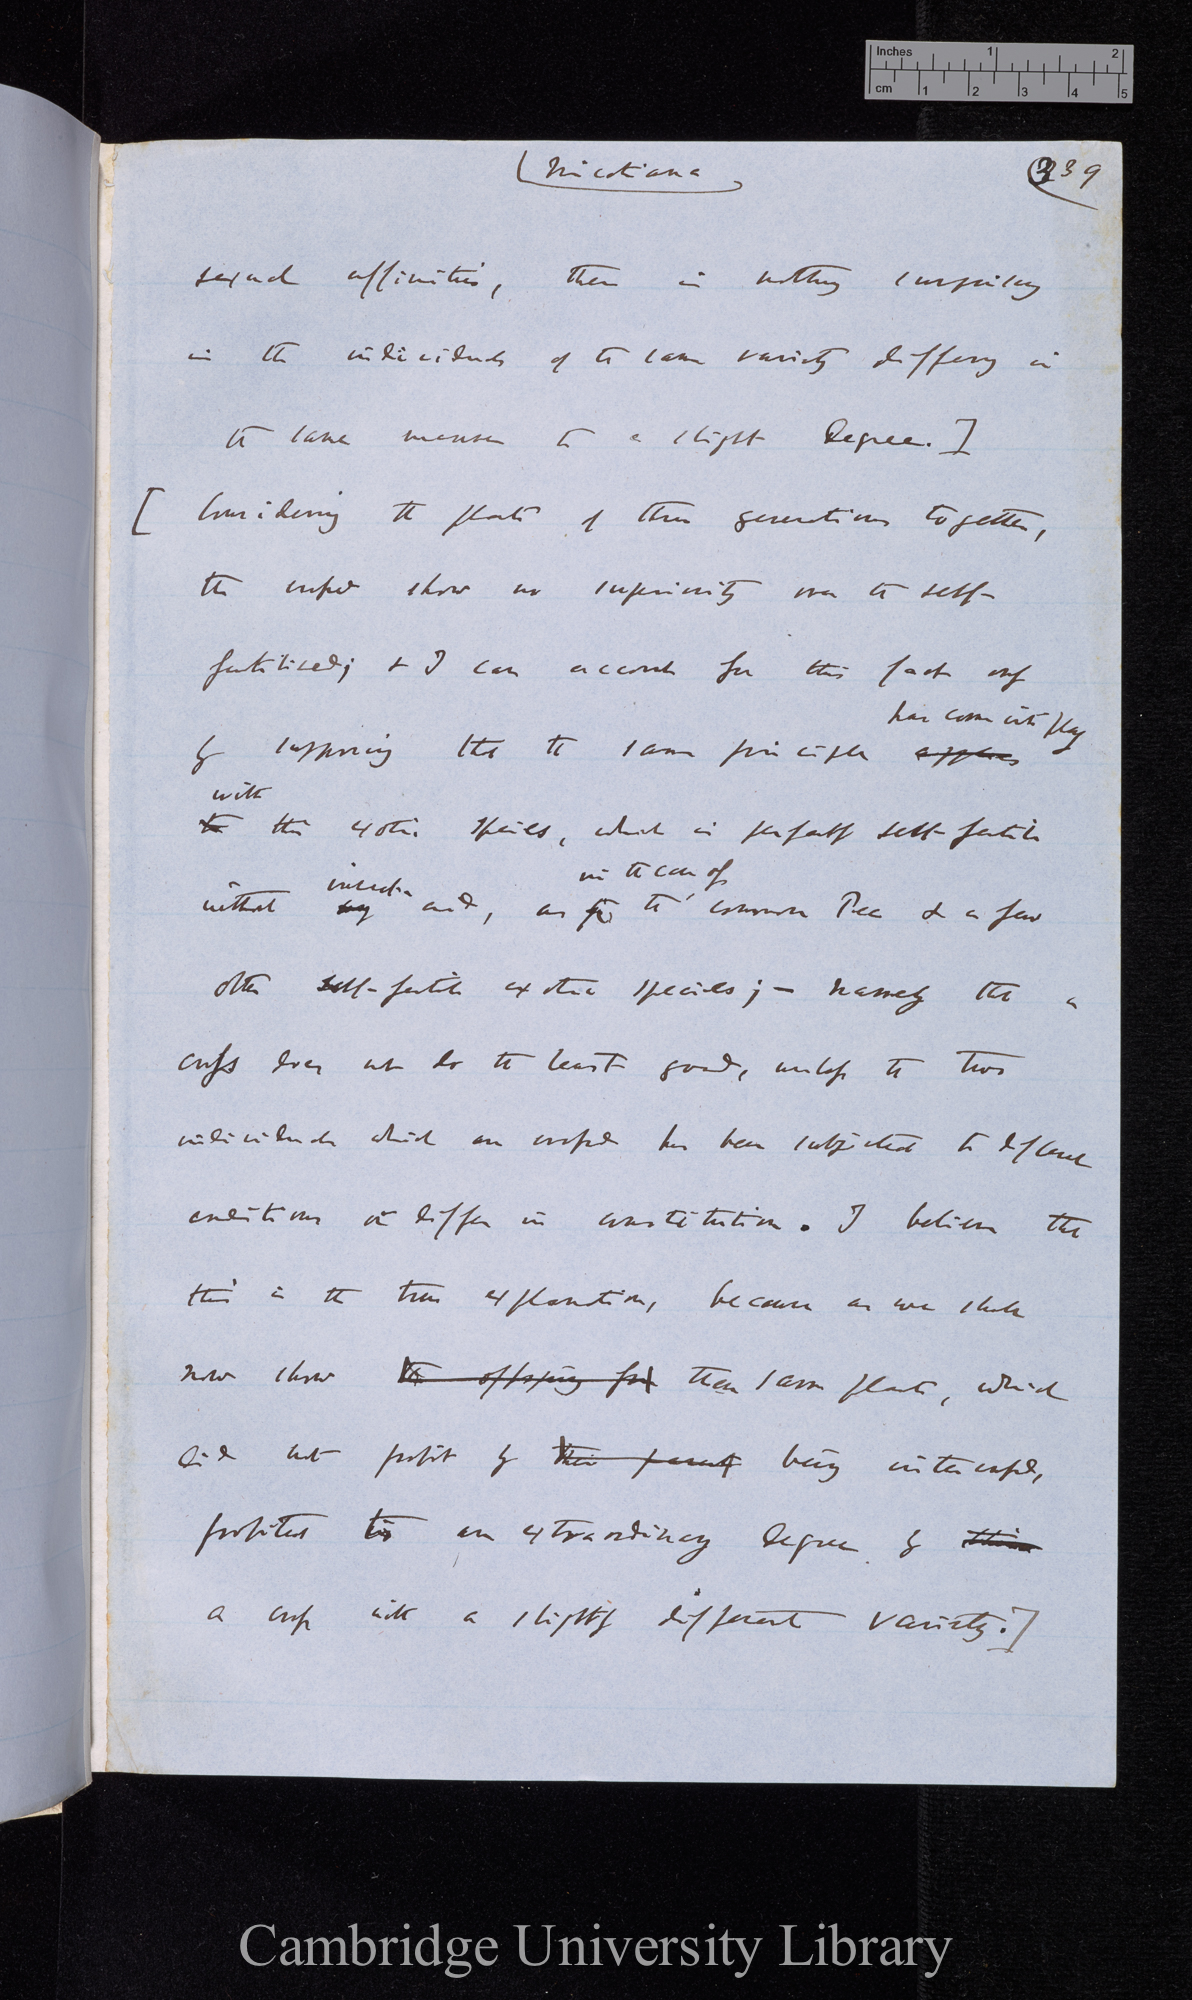 Inches 1 2
cm 1 2 3 4 5
(Nicotiana)
339
sexual affinities, there is nothing surprising
in the individuals of the same variety differing in
the same manner to a slight degree.]
[Considering the plants of three generations together,
the crossed show no superiority over the self-
fertilised; & I can account for this fact only
has come into play
by supposing that the same principle applies
with
to this exotic species, which is perfectly self-fertile
insect in the case of
without any aid, as for the common Pea & a few
other self-fertile exotic species; — namely that a
cross does not do the least good, unless the two
individuals which are crossed have been subjected to different
conditions or differ in constitution. I believe that
this is the true explanation, because as we shall
now show the offspring from these same plants, which
did not profit by their parents being intercrossed,
profited to an extraordinary degree by
a cross with a slightly different variety.]
Cambridge University Library